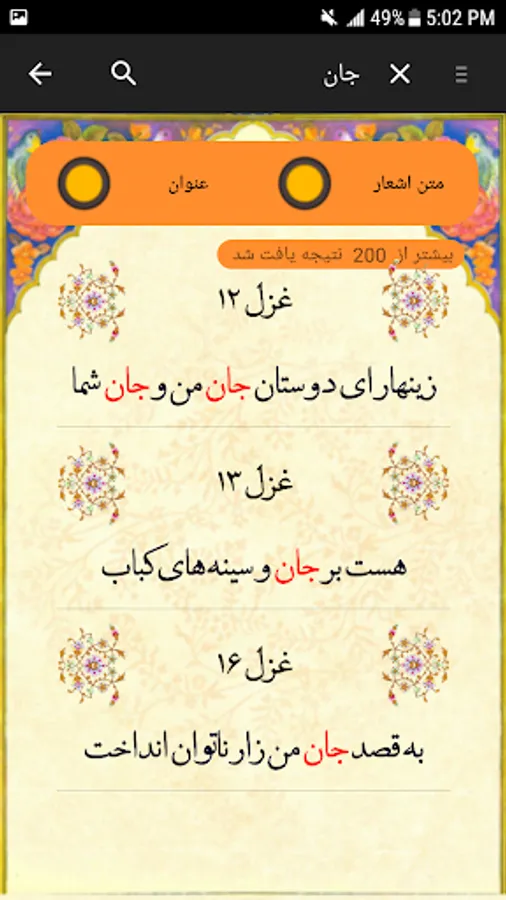 49% 5:02 PM
جان
متن اشعار
عنوان
بیشتر از 200 نتیجه یافت شد
غزل ۱۲
زینهار ای دوستان جان من و جان شما
غزل ۱۳
هست بر جان و سینه های کباب
غزل ۱۶
به قصد جان من زار ناتوان انداخت